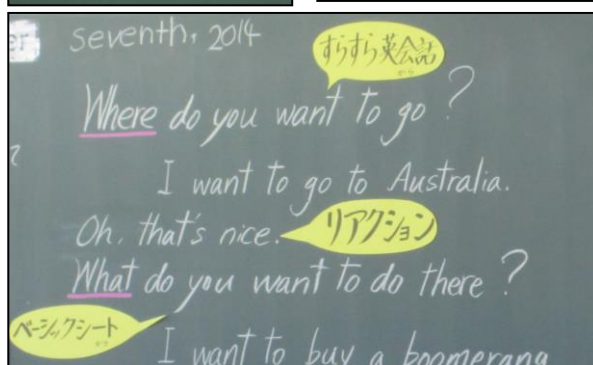 seventh, 2014
すらすら英会話
から
Where do you want to go?
I want to go to Australia.
Oh, that's nice.
リアクション
What do you want to do there?
ベーシックシート
I want to buy a boomerang